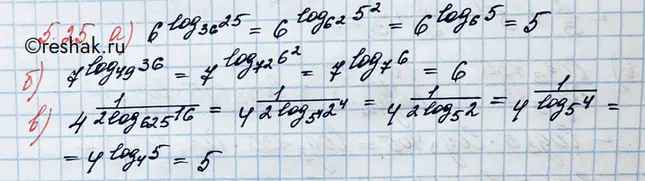 5.25 а) 6^{log_{36} 25} = 6^{log_{6^2} 5^2} = 6^{log_6 5} = 5
©reshak.ru
б) 7^{log_{49} 36} = 7^{log_{7^2} 6^2} = 7^{log_7 6} = 6
в) 4^{\frac{1}{2log_{625} 16}} = 4^{\frac{1}{2log_{5^4} 2^4}} = 4^{\frac{1}{2log_5 2}} = 4^{\frac{1}{log_5 4}} =
= 4^{log_4 5} = 5